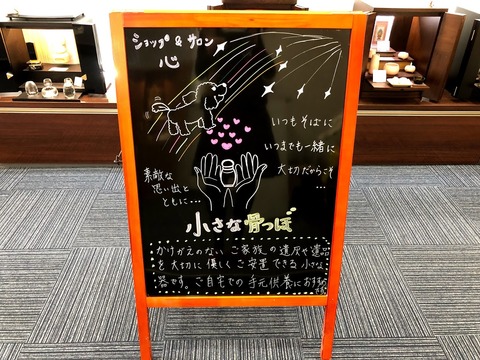 ショップ & サロン
心
いつもそばに
いつまでも一緒に
大切だからこそ
...
素敵な
思い出と
ともに...
小さな骨つぼ
かけがえのない ご家族の遺灰や遺品
を大切に優しくご安置できる小さな
器です。ご自宅での手元供養におすすめ